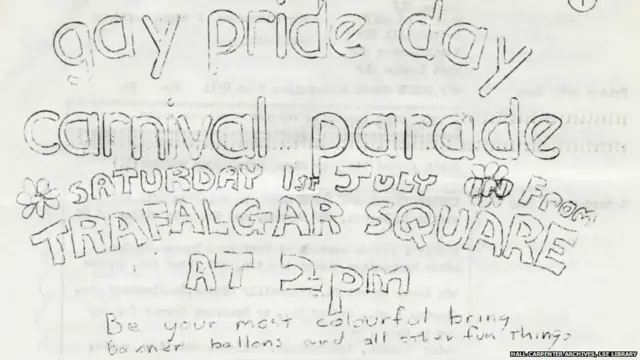 gay pride day
carnival parade
SATURDAY 1st JULY From
TRAFALGAR SQUARE
AT 2pm
Be your most colourful bring
Banner ballons and all other fun things
HALL-CARPENTER ARCHIVES, LSE LIBRARY